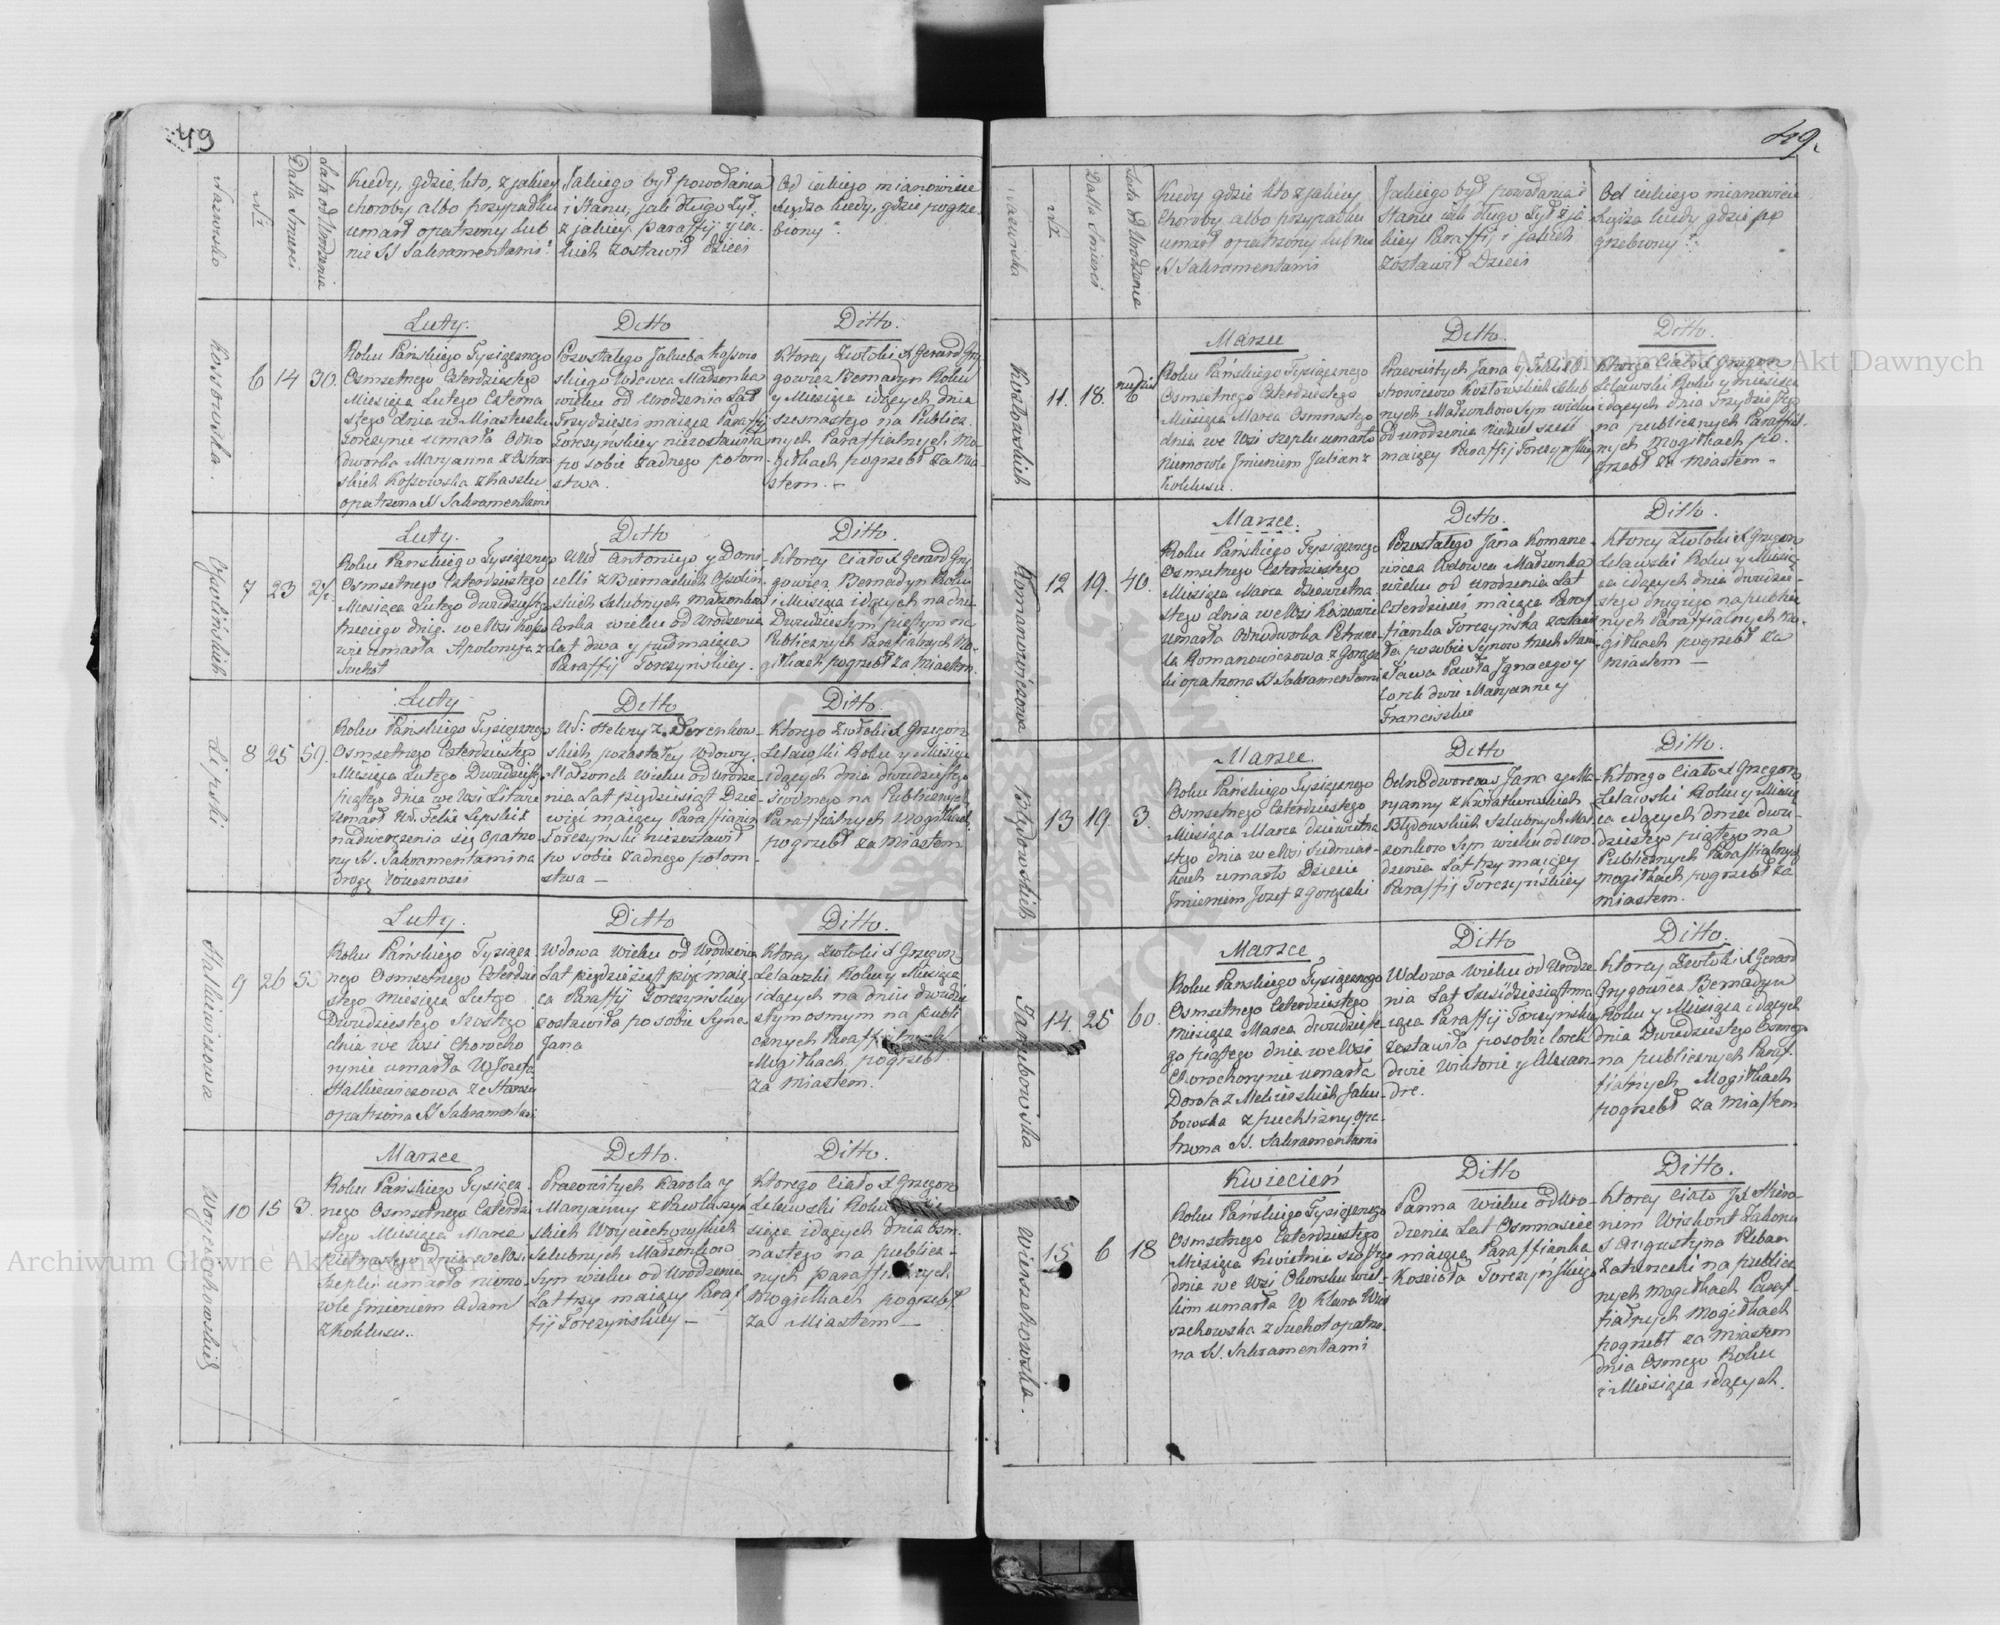 49
Nazwisko
Nr
Datta Smierci
Lata od Urodzenia
Kiedy, gdzie, kto, z jakiey
choroby albo przypadku
umarł opatrzony lub
nie SS Sakramentami?
Jakiego był powołania
i stanu, jak długo żył
z jakiey paraffij y ja-
kich zostawił dzieci
Od jakiego mianowicie
Xiędza kiedy, gdzie pogrze-
biony?
Kossowska.
6
14
30.
Luty.
Roku Pańskiego Tysięcznego
Osmsetnego Czterdziestego
Miesiąca Lutego Czterna-
stego dnia w Miasteczku
Torczynie umarła Odno
dworka Maryanna z Ostrow
skich Kossowska z Kaszlu
opatrzona SS Sakramentami
Ditto
Pozostałego Jakuba Kossow
skiego Wdowca Małżonka
wieku od Urodzenia Lat
Trzydzieści maiąca Paraffij
Torczynskiey niezostawiła
po sobie żadnego potom-
stwa.
Ditto.
Ktorey Zwłoki X Gerard Gry
gowicz Bernadyn Roku
y Miesiąca idących dnia
szesnastego na Publicz-
nych Paraffialnych Mo-
giłkach pogrzebł za Mia-
stem.
Ossolińskich
7
23
2½.
Luty.
Roku Panskiego Tysięcznego
Osmsetnego Czterdziestego
Miesiąca Lutego Dwudziesto
trzeciego dnia we Wsi
umarła Apolonija z
Suchot
Ditto
Antoniego y Domi-
celli z Biernackich Ossoliń
skich Szlubnych małżonkow
Corka wieku od Urodzenia
Lat dwa y puł maiąca
Paraffij Torczyńskiey.
Ditto
Ktorey Ciało X Gerard Gry
gowicz Bernadyn Roku
i Miesiąca idących na dniu
Dwudziestym piątym na
Publicznych Paraffialnych Mo-
giłkach pogrzebł za Miastem.
Lipski
8
25
59.
Luty
Roku Pańskiego Tysięcznego
Osmsetnego Czterdziestego
Miesiąca Lutego Dwudziesto
piątego dnia we Wsi Litwie
Umarł Felix Lipski z
nadwerężenia się opatrzo-
ny SS. Sakramentami na
drogę wieczności
Ditto
Heleny z
skich pozostałey Wdowy
Małżonek Wieku od Urodze-
nia Lat pięćdziesiąt Dzie-
więć maiący Paraffianin
Torczynski niezostawił
po sobie żadnego potom-
stwa
Ditto.
Ktorego Zwłoki X Grzegorz
Lelawski Roku y Miesiąca
idących dnia dwudziestego
siodmego na Publicznych
Paraffialnych Mogiłkach
pogrzebł za Miastem
Stalkiewiczowa
9
26
55
Luty.
Roku Pańskiego Tysiącz
nego Osmsetnego Czterdzie
stego Miesiąca Lutego
Dwudziestego Szostego
dnia we Wsi Chorocho
rynie umarła W Jozefa
Stalkiewiczowa ze Starości
opatrzona SS Sakramentami
Ditto
Wdowa Wieku od Urodzenia
Lat pięćdziesiąt pięć maią-
ca Paraffij Torczyńskiey
zostawiła po sobie Syna
Jana
Ditto.
Ktorey Zwłoki X Grzegorz
Lelawski Roku y Miesiąca
idących na dniu dwudzie
stym osmym na publi
cznych Paraffialnych
Mogiłkach pogrzebł
za Miastem.
Woyciechowskich
10
15
3.
Marzec
Roku Pańskiego Tysiącz-
nego Osmsetnego Czterdzie
stego Miesiąca Marca
Pietnastego dnia we Wsi
Szeplu umarło niemo-
wle Imieniem Adam
z Kokluszu..
Ditto.
Pracowitych Karola y
Maryanny z
skich Woyciechowskich
Szlubnych Małżonkow
Syn wieku od Urodzenia
Lat trzy maiący Paraf
fij Torczyńskiey
Ditto.
Ktorego Ciało X Grzegorz
Lelawski Roku
siąca idących dnia osm
nastego na publicz-
nych paraffialnych
Mogiłkach pogrzebł
za Miastem
49.
Nazwiska
Nr
Datta Smierci
Lata od Urodzenia
Kiedy gdzie kto z jakiey
Choroby albo przypadku
umarł opatrzony lub nie
SS Sakramentami
Jakiego był powołania i
stanu jak długo żył z ja
kiey Paraffij i jakich
zostawił Dzieci
Od jakiego mianowicie
Xiędza kiedy gdzie po
grzebiony?
Kozłowskich
11.
18.
niedziel
6
Marzec
Roku Pańskiego Tysięcznego
Osmsetnego Czterdziestego
Miesiąca Marca Osmnastego
dnia we Wsi Szeplu umarło
Niemowle Imieniem Julian z
Kokluszu.
Ditto.
Pracowitych Jana y
Kozłowskich Szlub
nych Małżonkow Syn wieku
od urodzenia niedziel sześć
maiący Paraffij Torczyńskiey
Ditto.
Ktorego Ciało X Grzegorz
Lelawski Roku y miesiąca
idących dnia
na publicznych Paraffial-
nych Mogiłkach po-
grzebł za Miastem
Romanowiczowa
12
19.
40.
Marzec.
Roku Pańskiego Tysięcznego
Osmsetnego Czterdziestego
Miesiąca Marca dziewietna
stego dnia we Wsi
umarła Odnodworka Petrune
la Romanowiczowa z Gorącz
ki opatrzona SS Sakramentami
Ditto.
Pozostałego Jana Romano-
wicza Wdowca Małżonka
wieku od urodzenia Lat
Czterdzieści maiąca Paraf
fianka Torczynska zostawi
ła po sobie Synow trzech Stani
sława Pawła Ignacego y
Corek dwie Maryannę y
Franciszkę
Ditto.
Ktorey Zwłoki X Grzegorz
Lelawski Roku y Miesią
ca idących dnia dwudzie-
stego drugiego na publicz
nych Paraffialnych Mo-
giłkach pogrzebł za
miastem
Błędowskich
13
19.
3.
Marzec.
Roku Pańskiego Tysięcznego
Osmsetnego Czterdziestego
Miesiąca Marca dziewietna
stego dnia we Wsi Siedmiar-
kach umarło Dziecie
Imieniem Jozef z Gorączki
Ditto
Odnodworcow Jana y Ma-
ryanny z Kwiatkowskich
Błędowskich Szlubnych Mał
żonkow Syn wieku od Uro-
dzenia Lat trzy maiący
Paraffij Torczyńskiey
Ditto.
Ktorego Ciało X Grzegorz
Lelawski Roku y Miesią
ca idących dnia dwu-
dziestego piątego na
Publicznych Paraffialnych
mogiłkach pogrzebł za
miastem.
Jakubowska
14.
25
60.
Marzec
Roku Pańskiego Tysięcznego
Osmsetnego Czterdziestego
Miesiąca Marca dwudzieste
go piątego dnia we Wsi
Chorochorynie umarła
Dorota z Jaku-
bowska z puchliny opa-
trzona SS. Sakramentami
Ditto
Wdowa Wieku od Urodze
nia Lat Sześdziesiąt ma
iąca Paraffij Torczynskiey
Zostawiła po sobie Corek
dwie Wiktorię y Alexan-
drę.
Ditto.
Ktorey Zwłoki X Gerard
Grygowicz Bernadyn
Roku y Miesiąca idących
dnia Dwudziestego Osmego
na publicznych Paraf-
fialnych Mogiłkach
pogrzebł za Miastem
Wierszchowska.
15
6
18
Kwiecień
Roku Pańskiego Tysięcznego
Osmsetnego Czterdziestego
Miesiąca Kwietnia szostego
dnia we Wsi Oborsku Wiel-
kim umarła W Klara Wier
szchowska z Suchot opatrzo-
na SS. Sakramentami
Ditto
Panna Wieku od Uro-
dzenia Lat Osmnascie
maiąca Paraffianka
Kościoła Torczyńskiego
Ditto.
Ktorey Ciało JX Hiero-
nim Wiskont Zakonu
S Augustyna Pleban
Zaturzecki na publicz
nych mogiłkach Paraf-
fialnych Mogiłkach
pogrzebł za Miastem
dnia Osmego Roku
i Miesiąca idących.
Archiwum Główne Akt Dawnych
Archiwum Główne Akt Dawnych